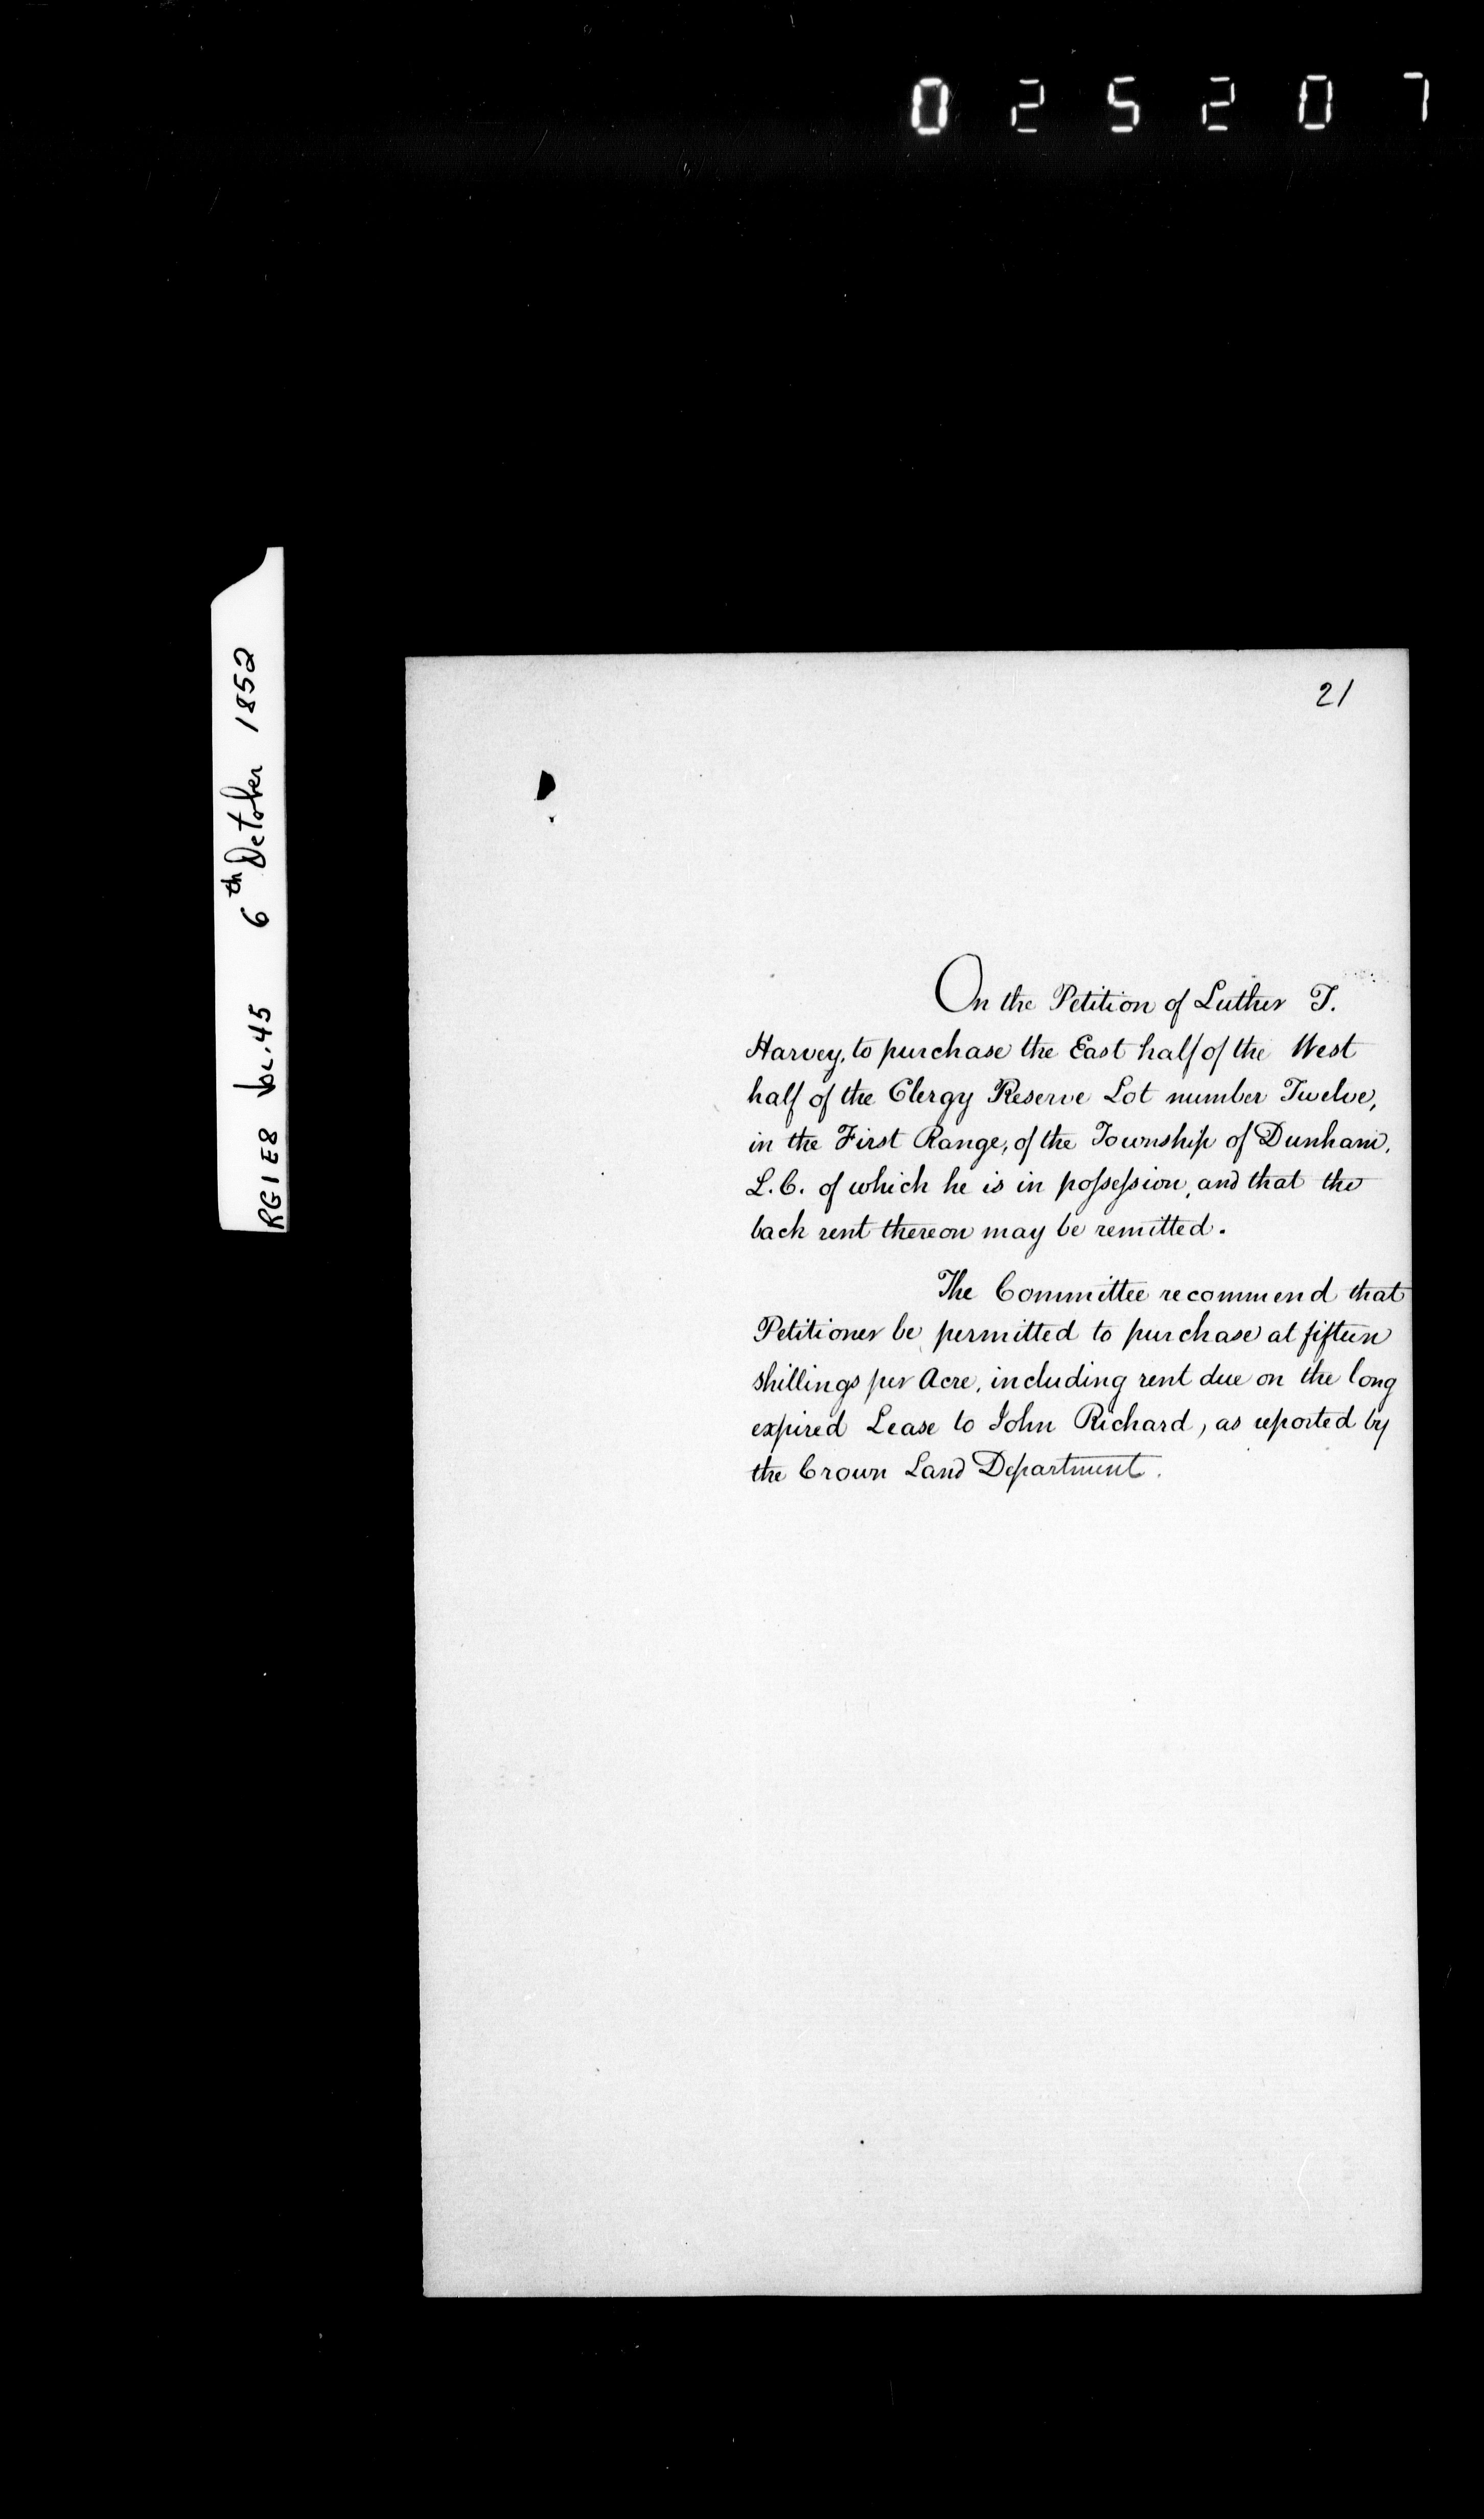 025207
RG1E8 Vol.45 6th October 1852
21
On the Petition of Luther T.
Harvey, to purchase the East half of the West
half of the Clergy Reserve Lot number Twelve,
in the First Range, of the Township of Dunham,
L.C. of which he is in poſseſsion, and that the
back rent thereon may be remitted.
The Committee recommend that
Petitioner be permitted to purchase at fifteen
shillings per Acre, including rent due on the long
expired Lease to John Richard, as reported by
the Crown Land Department.